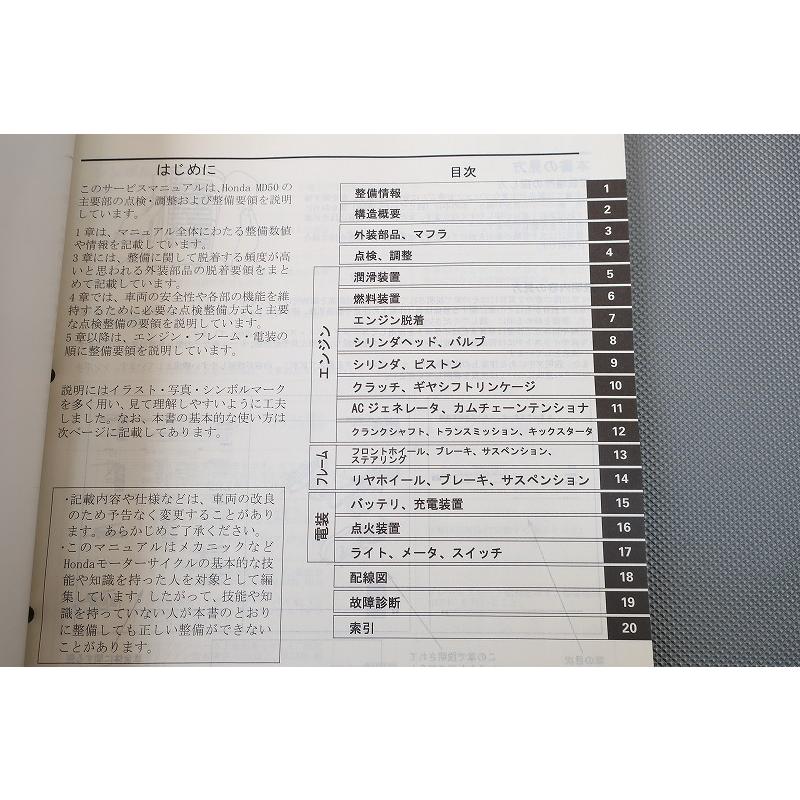 はじめに
このサービスマニュアルは､Honda MD50の
主要部の点検・調整および整備要領を説明
しています。
1章は、マニュアル全体にわたる整備数値
や情報を記載しています。
3章には、整備に関して脱着する頻度が高
いと思われる外装部品の脱着要領をまと
めて記載しています。
4章では、車両の安全性や各部の機能を維
持するために必要な点検整備方式と主要
な点検整備の要領を説明しています。
5章以降は、エンジン・フレーム・電装の
順に整備要領を説明しています。
説明にはイラスト・写真・シンボルマーク
を多く用い、見て理解しやすいように工夫
しました。なお、本書の基本的な使い方は
次ページに記載してあります。
・記載内容や仕様などは、車両の改良
のため予告なく変更することがあり
ます。あらかじめご了承ください。
・このマニュアルはメカニックなど
Hondaモーターサイクルの基本的な技
能や知識を持った人を対象として編
集しています。したがって、技能や知
識を持っていない人が本書のとおり
に整備しても正しい整備ができない
ことがあります。
目次
整備情報 1
構造概要 2
外装部品、マフラ 3
点検、調整 4
エンジン
潤滑装置 5
燃料装置 6
エンジン脱着 7
シリンダヘッド、バルブ 8
シリンダ、ピストン 9
クラッチ、ギヤシフトリンケージ 10
ACジェネレータ、カムチェーンテンショナ 11
クランクシャフト、トランスミッション、キックスタータ 12
フレーム
フロントホイール、ブレーキ、サスペンション、
ステアリング 13
リヤホイール、ブレーキ、サスペンション 14
電装
バッテリ、充電装置 15
点火装置 16
ライト、メータ、スイッチ 17
配線図 18
故障診断 19
索引 20